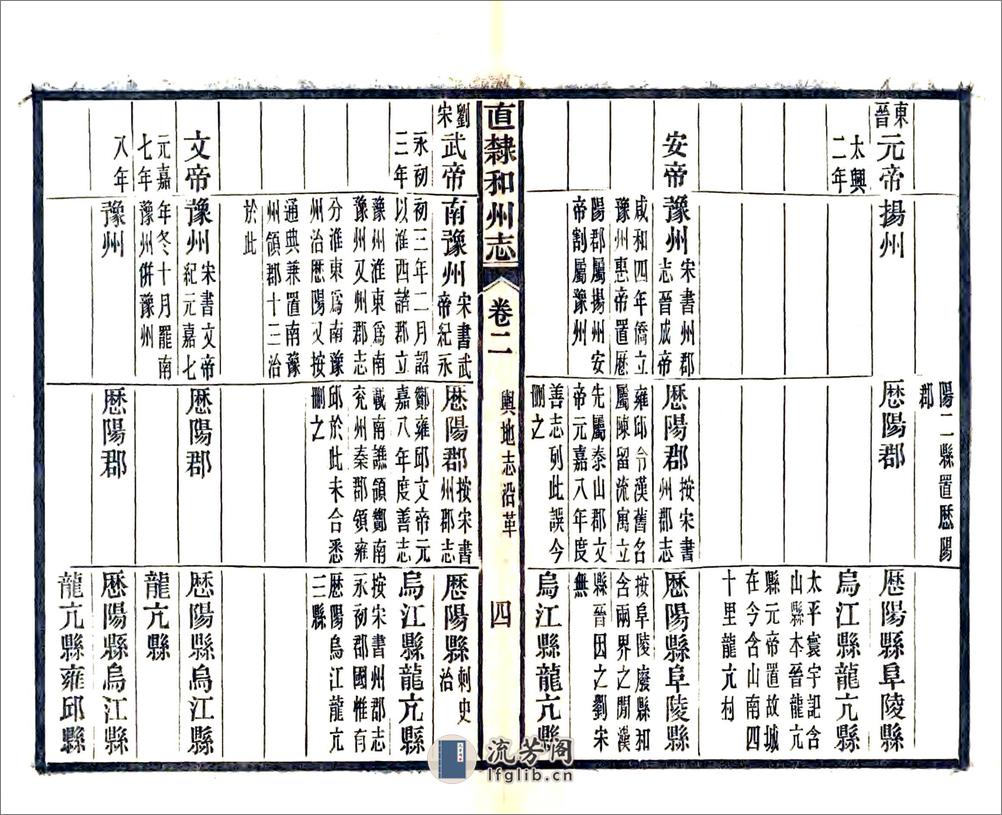 陽二縣置厯陽
郡
東晉
元帝
太興
二年
揚州
厯陽郡
厯陽縣阜陵縣
烏江縣龍亢縣
太平寰宇記含
山縣本晉龍亢
縣元帝置故城
在今含山南四
十里龍亢村
安帝
豫州
宋書州郡
志晉成帝
咸和四年僑立
豫州惠帝置厯
陽郡屬揚州安
帝割屬豫州
厯陽郡
按宋書
州郡志
雍邱令漢舊名
屬陳留流寓立
先屬泰山郡文
帝元嘉八年度
善志列此誤今
刪之
厯陽縣阜陵縣
按阜陵廢縣和
含兩界之閒漢
縣晉因之劉宋
無
烏江縣龍亢縣
直隸和州志
卷二
輿地志沿革
四
劉宋
武帝
永初
三年
南豫州
宋書武
帝紀永
初三年二月詔
以淮西諸郡立
豫州淮東為南
豫州又州郡志
分淮東為南豫
州治厯陽又按
通典兼置南豫
州領郡十三治
於此
厯陽郡
按宋書
州郡志
酇雍邱文帝元
嘉八年度善志
載南譙領酇南
兗州秦郡領雍
邱於此未合悉
刪之
厯陽縣
刺史
治
烏江縣龍亢縣
按宋書州郡志
永初郡國惟有
厯陽烏江龍亢
三縣
文帝
元嘉
七年
豫州
宋書文帝
紀元嘉七
年冬十月罷南
豫州併豫州
厯陽郡
厯陽縣烏江縣
龍亢縣
八年
豫州
厯陽郡
厯陽縣烏江縣
龍亢縣雍邱縣
流芳阁
lfglib.cn